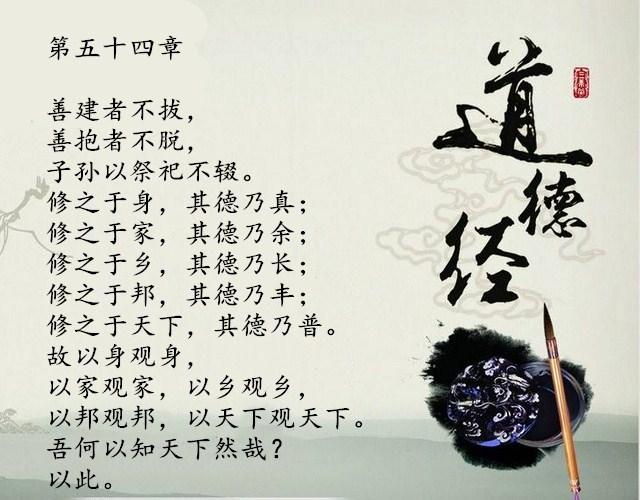 第五十四章
善建者不拔，
善抱者不脱，
子孙以祭祀不辍。
修之于身，其德乃真；
修之于家，其德乃余；
修之于乡，其德乃长；
修之于邦，其德乃丰；
修之于天下，其德乃普。
故以身观身，
以家观家，以乡观乡，
以邦观邦，以天下观天下。
吾何以知天下然哉？
以此。
道德经